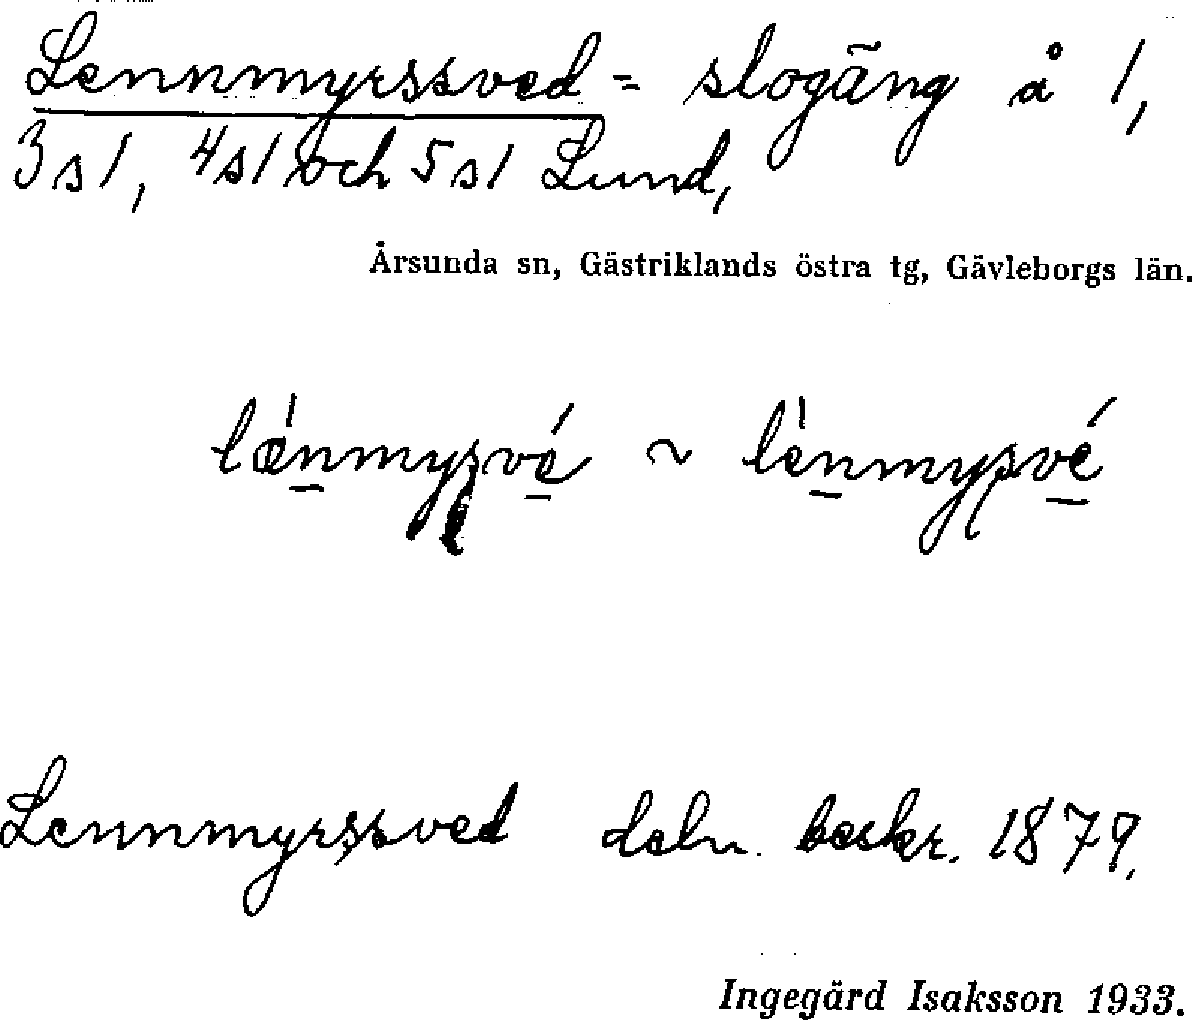 Lennmyrssved = slogäng å 1,
3 s1, 4 s1 och 5 s1 Lund,
Årsunda sn, Gästriklands östra tg, Gävleborgs län.
Lennmyrssved deln. beskr. 1879.
Ingegärd Isaksson 1933.